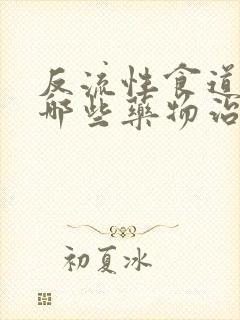 反流性食道
那些药物治
初夏冰